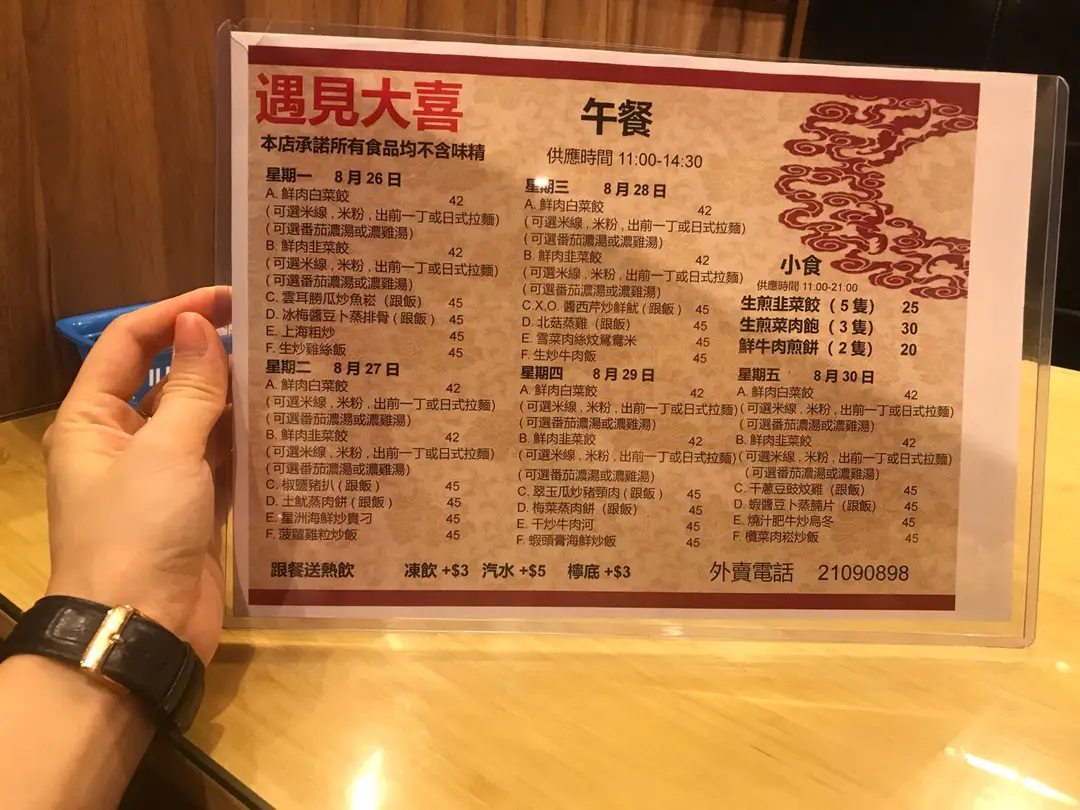 遇見大喜
午餐
本店承諾所有食品均不含味精
供應時間 11:00-14:30
星期一 8月26日
A. 鮮肉白菜餃 42
(可選米線，米粉，出前一丁或日式拉麵)
(可選番茄濃湯或濃雞湯)
B. 鮮肉韭菜餃 42
(可選米線，米粉，出前一丁或日式拉麵)
(可選番茄濃湯或濃雞湯)
C. 雲耳勝瓜炒魚崧（跟飯） 45
D. 冰梅醬豆卜蒸排骨 (跟飯) 45
E. 上海粗炒 45
F. 生炒雞絲飯 45
星期二 8月27日
A. 鮮肉白菜餃 42
(可選米線，米粉，出前一丁或日式拉麵)
(可選番茄濃湯或濃雞湯)
B. 鮮肉韭菜餃 42
(可選米線，米粉，出前一丁或日式拉麵)
(可選番茄濃湯或濃雞湯)
C. 椒鹽豬扒 (跟飯) 45
D. 土魷蒸肉餅 (跟飯) 45
E. 星洲海鮮炒貴刁 45
F. 菠蘿雞粒炒飯 45
星期三 8月28日
A. 鮮肉白菜餃 42
(可選米線，米粉，出前一丁或日式拉麵)
(可選番茄濃湯或濃雞湯)
B. 鮮肉韭菜餃 42
(可選米線，米粉，出前一丁或日式拉麵)
(可選番茄濃湯或濃雞湯)
C.X.O. 醬西芹炒鮮魷 (跟飯) 45
D. 北菇蒸雞（跟飯） 45
E. 雪菜肉絲炆鴛鴦米 45
F. 生炒牛肉飯 45
星期四 8月29日
A. 鮮肉白菜餃 42
(可選米線，米粉，出前一丁或日式拉麵)
(可選番茄濃湯或濃雞湯)
B. 鮮肉韭菜餃 42
(可選米線，米粉，出前一丁或日式拉麵)
(可選番茄濃湯或濃雞湯)
C. 翠玉瓜炒豬頸肉 (跟飯) 45
D. 梅菜蒸肉餅（跟飯） 45
E. 干炒牛肉河 45
F. 蝦頭膏海鮮炒飯 45
小食
供應時間 11:00-21:00
生煎韭菜餃（5隻） 25
生煎菜肉飽（3隻） 30
鮮牛肉煎餅（2隻） 20
星期五 8月30日
A. 鮮肉白菜餃 42
(可選米線，米粉，出前一丁或日式拉麵)
(可選番茄濃湯或濃雞湯)
B. 鮮肉韭菜餃 42
(可選米線，米粉，出前一丁或日式拉麵)
(可選番茄濃湯或濃雞湯)
C. 干蔥豆豉炆雞（跟飯） 45
D. 蝦醬豆卜蒸腩片（跟飯） 45
E. 燒汁肥牛炒烏冬 45
F. 欖菜肉崧炒飯 45
跟餐送熱飲 凍飲 +$3 汽水 +$5 檸底 +$3
外賣電話 21090898